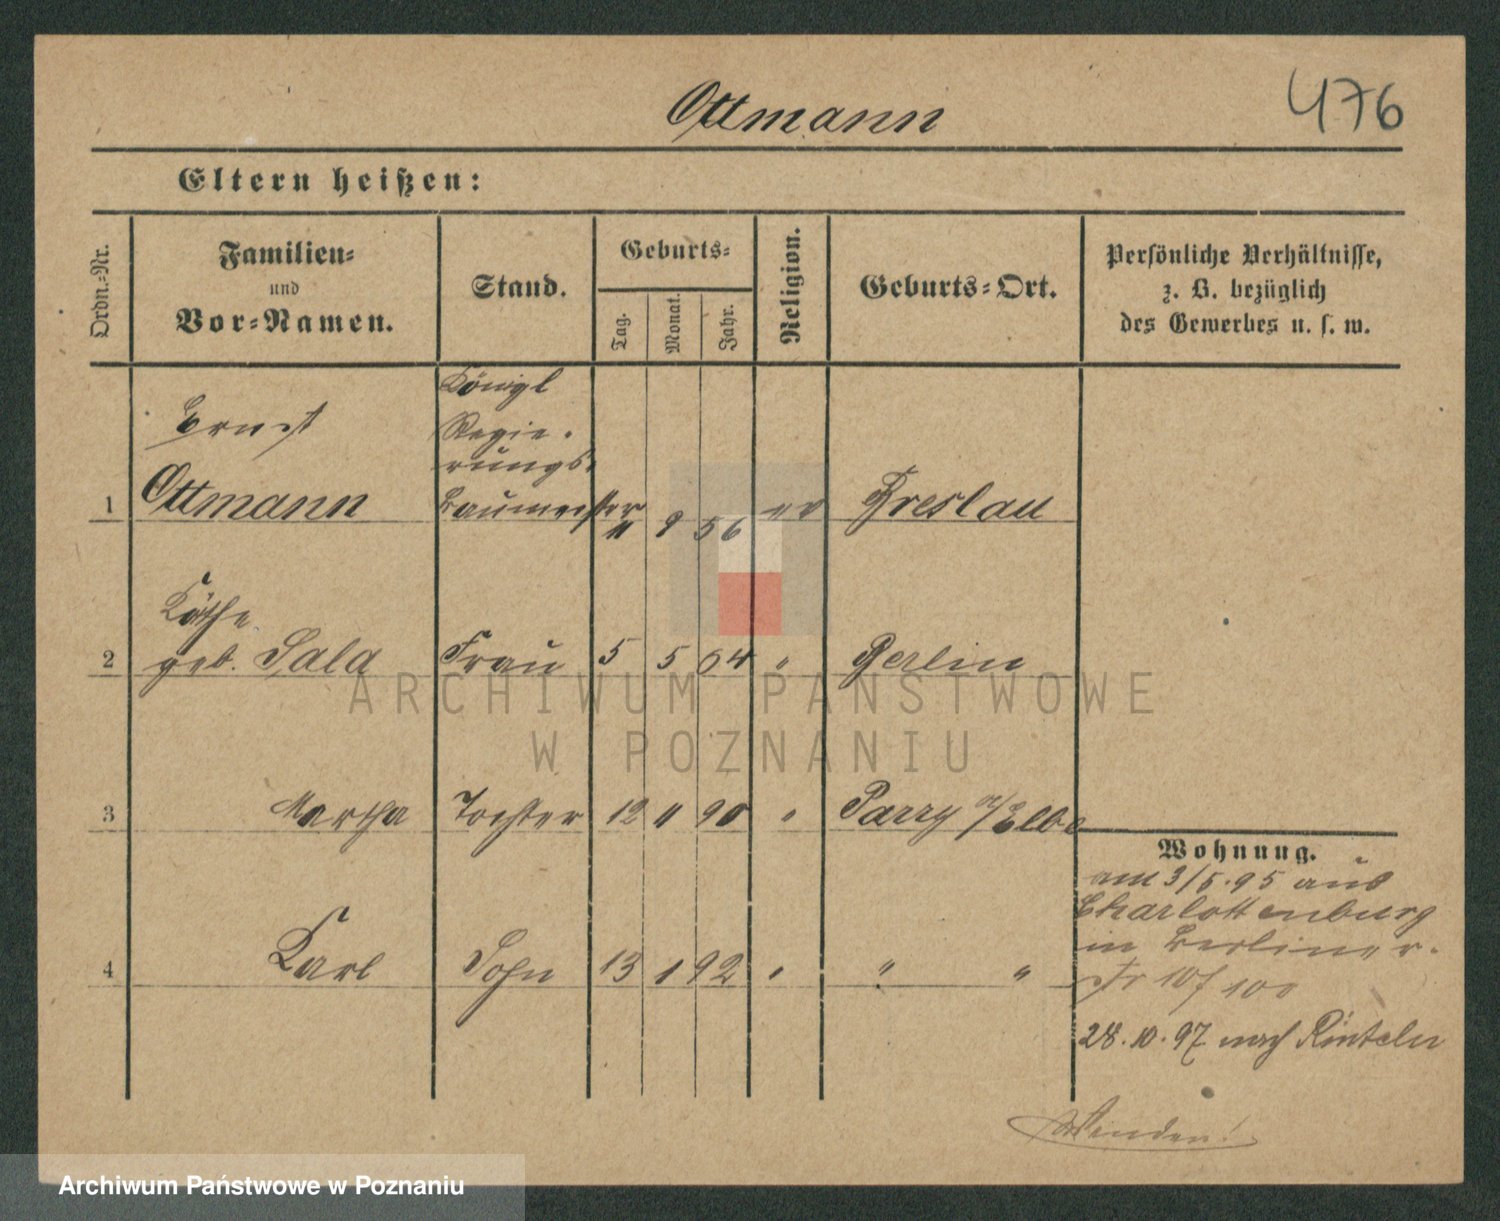 Ottmann
476
Eltern heißen:
Ordn.-Nr.
Familien-
und
Vor-Namen.
Stand.
Geburts-
Tag.
Monat.
Jahr.
Religion.
Geburts-Ort.
Persönliche Verhältnisse,
z. B. bezüglich
des Gewerbes u. s. w.
1
Ernst
Ottmann
Königl
Regie-
rungs-
baumeister
11 9 56 ev Breslau
2
Käthe
geb. Sala Frau 5 5 64 " Berlin
3 Martha Tochter 12 11 90 " Parey a/Elbe
4 Karl Sohn 13 1 92 " " "
Wohnung.
am 3/5.95 aus
Charlottenburg
in Berliner-
Str 100
28.10.97 nach Rinteln
Wenden!
ARCHIWUM PAŃSTWOWE
W POZNANIU
Archiwum Państwowe w Poznaniu